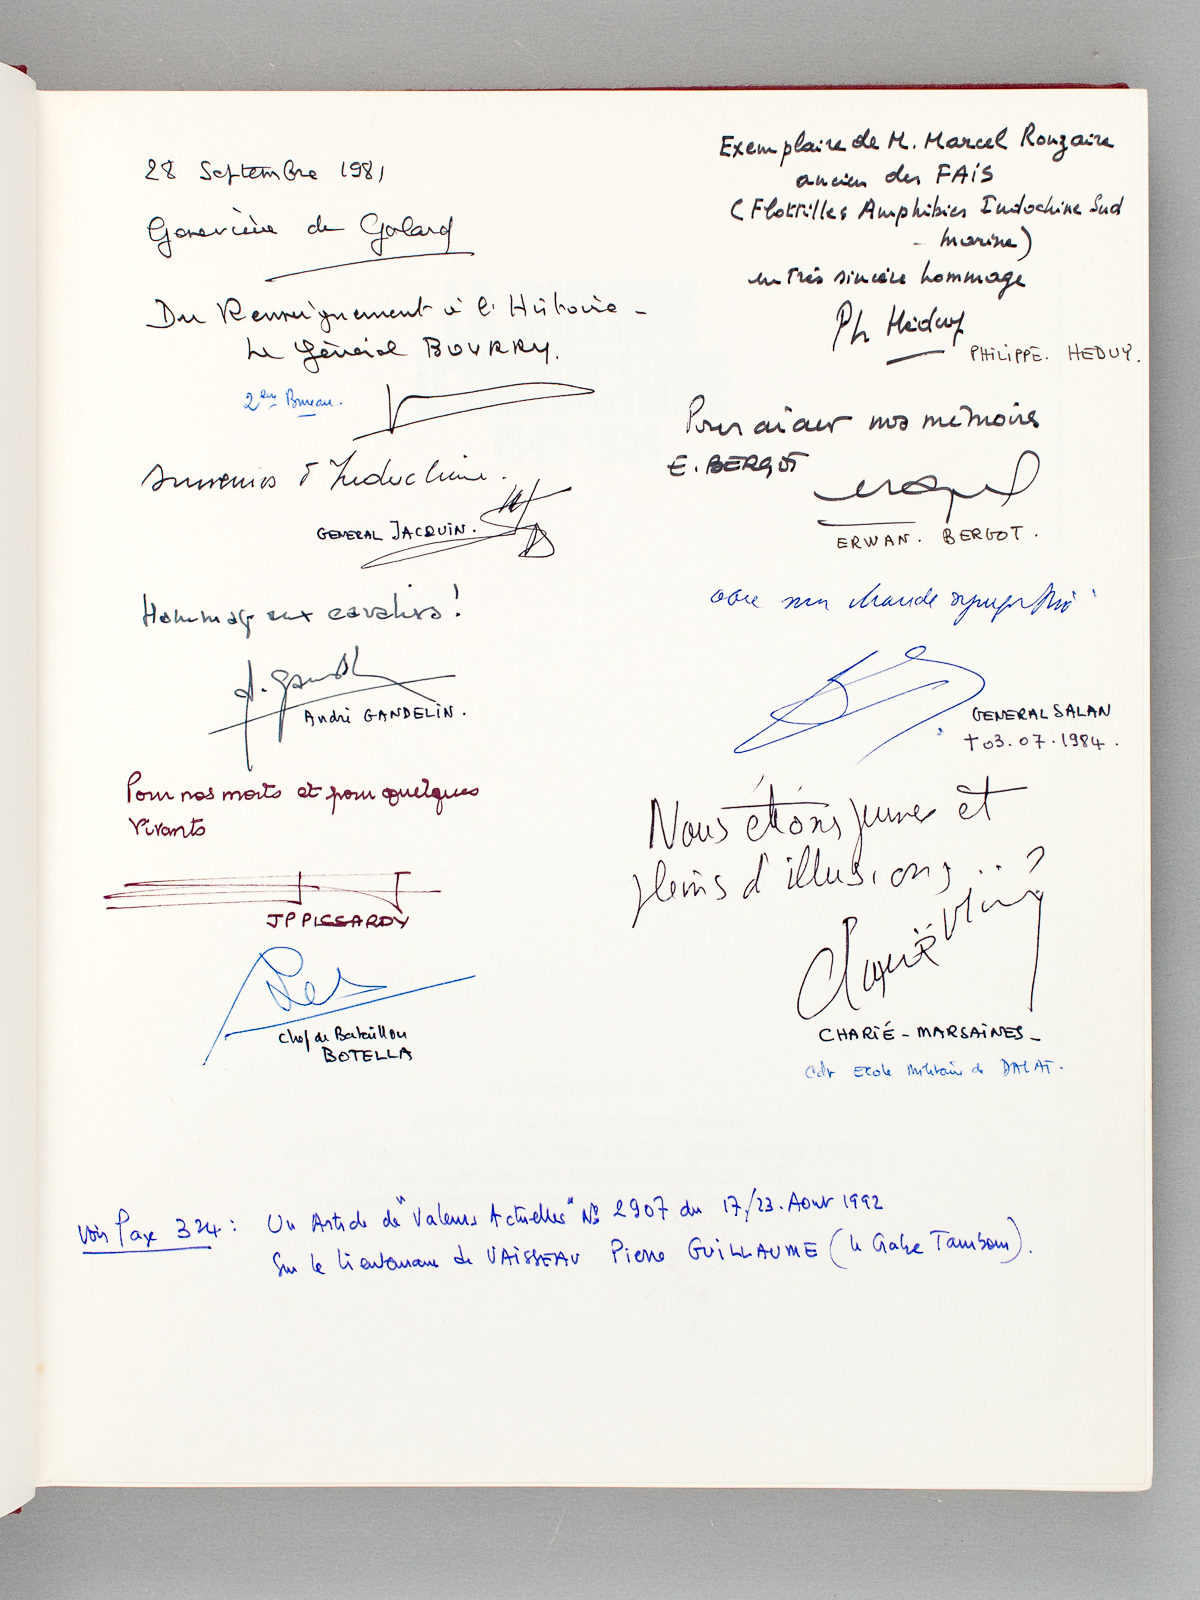 28 Septembre 1981
Geneviève de Galard
Du Renseignement à l'Histoire -
Le Général BOURRY.
2ème Bureau.
Souvenirs d'Indochine.
GENERAL JACQUIN.
Hommage aux cavaliers !
A. Gandelin
André GANDELIN.
Pour nos morts et pour quelques
vivants
JP PISSARDY
Chef de Bataillon
BOTELLA
Exemplaire de M. Marcel Rouzaire
ancien des FAIS
(Flottilles Amphibies Indochine Sud
- marine)
en très sincère hommage
Ph Héduy
PHILIPPE. HEDUY.
Pour aider nos mémoires
E. BERGOT
ERWAN. BERGOT.
avec ma chaude sympathie
GENERAL SALAN
† 03.07.1984.
Nous étions jeunes et
pleins d'illusions...?
CHARIÉ - MARSAINES -
Cdt Ecole Militaire de DALAT.
Voir Page 324 : Un Article de "Valeurs Actuelles" N° 2907 du 17/23. Aout 1992
Sur le Lieutenant de VAISSEAU Pierre GUILLAUME (le Crabe Tambour).